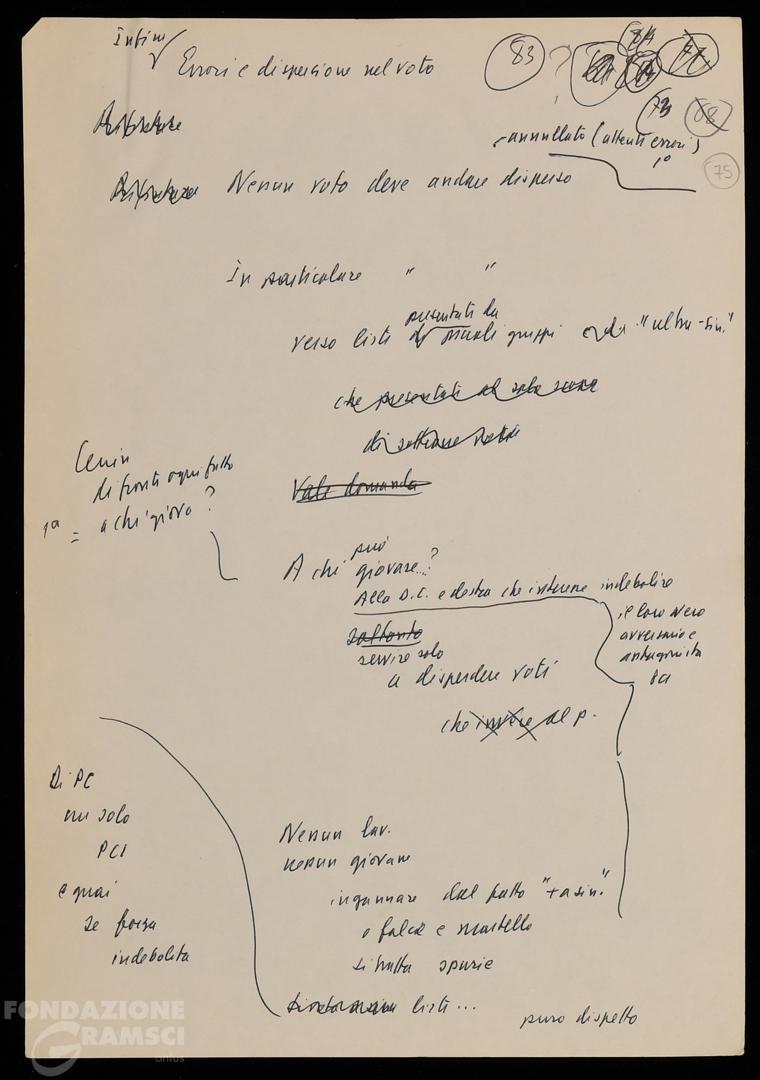 Infine
Errori e dispersione nel voto
83 ? 84
73 68
75
annullato (attenti errori)
1°
Nessun voto deve andare disperso
In particolare " "
presentati da
verso liste di piccoli gruppi o da "ultra-sin."
che presentati al solo scopo
di sottrarre voti
Lenin
di fronte ogni fatto
1a = a chi giova?
Vale domanda
può
A chi giovare...?
Alla D.C. e destra che insieme indebolire
il loro vero
avversario e
antagonista
soltanto
servire solo
a disperdere voti
che invece al p.
Di PC
un solo
PCI
e guai
se forza
indebolita
Nessun lav.
nessun giovane
ingannare dal fatto "+ a sin."
o falce e martello
si tratta spurie
liste...
puro dispetto
FONDAZIONE
GRAMSCI
onlus